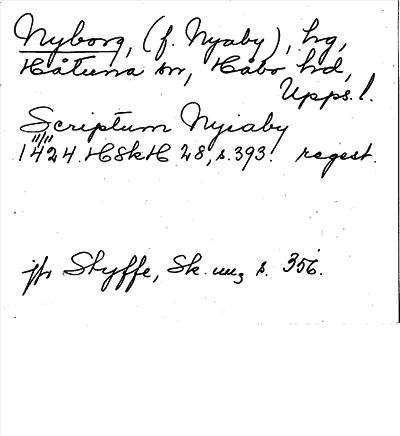 Nyborg, (f. Nyaby), hg,
Håtuna sn, Håbo hd,
Upps. l.
Scriptum Nyiaby
1424. HSkH 28, s. 393. regest.
jfr Styffe, Sk. un, s. 356.